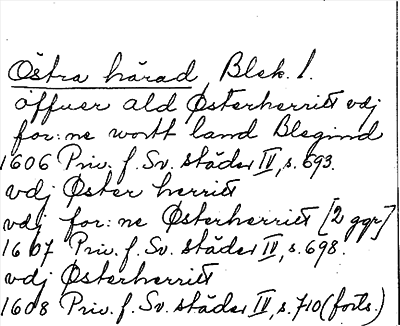 Östra härad, Blek. l.
offuer ald Østerherritt vdj
for:ne wortt land Blegind
1606 Priv. f. Sv. städer IV, s. 693.
vdj Øster herritt
vdj for:ne Østerherritt [2 ggr]
1607 Priv. f. Sv. städer IV, s. 698.
vdj Østerherritt
1608 Priv. f. Sv. städer IV, s. 710 (forts.)